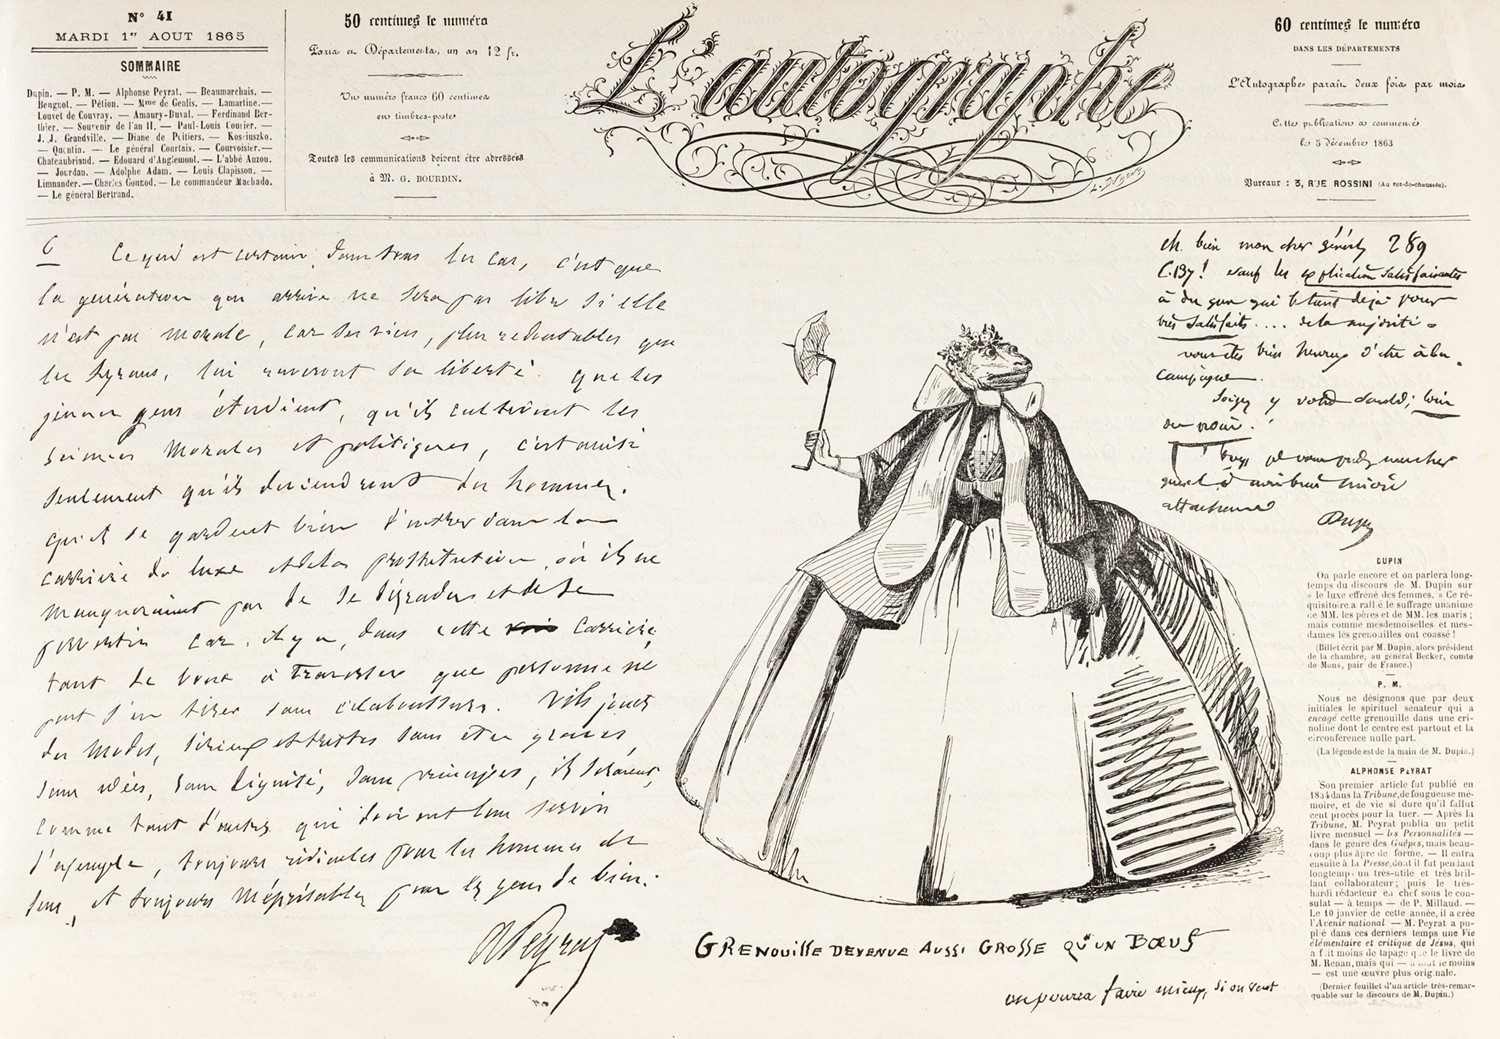 N° 41
MARDI 1er AOUT 1865
SOMMAIRE
Dupin. — P. M. — Alphonse Peyrat. — Beaumarchais. —
Beugnot. — Pétion. — Mme de Genlis. — Lamartine. —
Louvet de Couvray. — Amaury-Duval. — Ferdinand Ber-
thier. — Souvenir de l'an II. — Paul-Louis Courier. —
J. J. Grandville. — Diane de Poitiers. — Kosciuszko.
— Quentin. — Le général Courtais. — Courvoisier. —
Chateaubriand. — Edouard d'Anglemont. — L'abbé Auzou.
— Jourdan. — Adolphe Adam. — Louis Clapisson. —
Limnander. — Charles Gounod. — Le commandeur Machado.
— Le général Bertrand.
50 centimes le numéro
Paris et Départements, un an 12 fr.
Un numéro franco 60 centimes
en timbres-poste
Toutes les communications doivent être adressées
à M. G. BOURDIN.
L'autographe
60 centimes le numéro
DANS LES DÉPARTEMENTS
L'Autographe parait deux fois par mois
Cette publication a commencé
le 5 décembre 1863
Bureaux : 3, RUE ROSSINI (Au rez-de-chaussée).
6 Ce qui est certain, dans tous les cas, c'est que
la génération qui arrive ne sera pas libre si elle
n'est pas morale, car les vices, plus redoutables que
les tyrans, lui raviront sa liberté. que les
jeunes gens étudient, qu'ils cultivent les
sciences morales et politiques, c'est ainsi
seulement qu'ils deviendront des hommes.
qu'ils se gardent bien d'entrer dans la
carrière du luxe et de la prostitution, où ils ne
manqueraient pas de se dégrader et de se
pervertir car, il y a, dans cette carrière,
tant de boue à traverser que personne ne
peut s'en tirer sans éclaboussures. Vils jouets
des modes, sérieux et tristes sans être graves
sans idées, sans dignité, sans principes, ils seraient,
comme tant d'autres qui doivent leur servir
d'exemple, toujours ridicules pour les hommes de
sens, et toujours méprisables pour les gens de bien.
A Peyrat
GRENOUILLE DEVENUE AUSSI GROSSE QU'UN BŒUF
on pourra faire mieux, si on veut
eh bien mon cher général 289
C. 137! sauf les explications satisfaisantes
à du gens qui étaient déjà pour
très satisfaits .... de la majorité =
vous êtes bien heureux d'être à la
campagne.
Soignez y votre santé; loin
du
attachement
Dupin
DUPIN
On parle encore et on parlera long-
temps du discours de M. Dupin sur
« le luxe effréné des femmes. » Ce ré-
quisitoire a rallié le suffrage unanime
de MM. les pères et de MM. les maris ;
mais comme mesdemoiselles et mes-
dames les grenouilles ont coassé !
(Billet écrit par M. Dupin, alors président
de la chambre, au général Becker, comte
de Mons, pair de France.)
P. M.
Nous ne désignons que par deux
initiales le spirituel sénateur qui a
encagé cette grenouille dans une cri-
noline dont le centre est partout et la
circonférence nulle part.
(La légende est de la main de M. Dupin.)
ALPHONSE PEYRAT
Son premier article fut publié en
1834 dans la Tribune, de fougueuse mé-
moire, et de vie si dure qu'il fallut
cent procès pour la tuer. — Après la
Tribune, M. Peyrat publia un petit
livre mensuel — les Personnalités —
dans le genre des Guêpes, mais beau-
coup plus âpre de forme. — Il entra
ensuite à la Presse, dont il fut pendant
longtemps un très-utile et très bril-
lant collaborateur ; puis le très-
hardi rédacteur en chef sous le con-
sulat — à temps — de P. Millaud. —
Le 10 janvier de cette année, il a créé
l'Avenir national. — M. Peyrat a pu-
blié dans ces derniers temps une Vie
élémentaire et critique de Jésus, qui
a fait moins de tapage que le livre de
M. Renan, mais qui — à tout le moins
— est une œuvre plus originale.
(Dernier feuillet d'un article très-remar-
quable sur le discours de M. Dupin.)